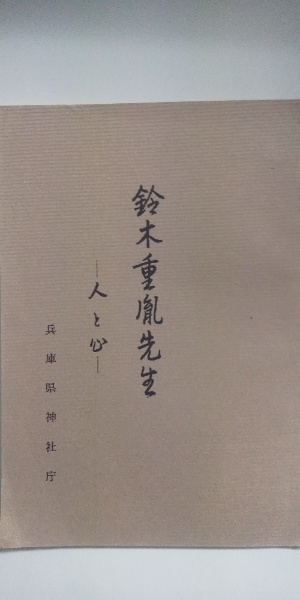 鈴木重胤先生
―人と心―
兵庫県神社庁